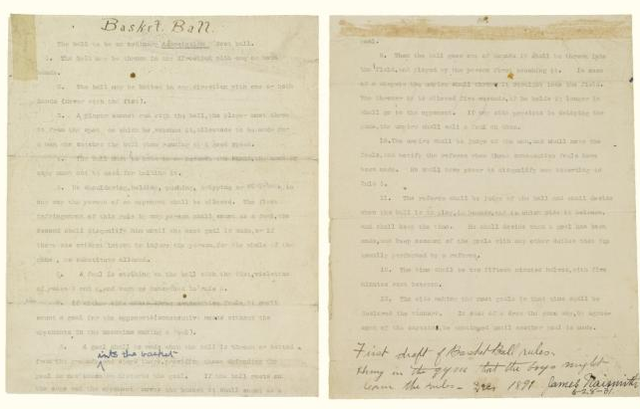 Basket Ball.
The ball to be an ordinary Association foot ball.
1. The ball may be thrown in any direction with one or both
hands.
2. The ball may be batted in any direction with one or both
hands (never with the fist).
3. A player cannot run with the ball, the player must throw
it from the spot on which he catches it, allowance to be made for
a man who catches the ball when running at a good speed.
4. The ball must be held
must not be used for holding it.
5. No shouldering, holding, pushing, tripping or striking in
any way the person of an opponent shall be allowed. The first
infringement of this rule by any person shall count as a foul, the
second shall disqualify him until the next goal is made, or if
there was evident intent to injure the person, for the whole of the
game, no substitute allowed.
6. A foul is striking at the ball with the fist, violation
of rules 3 and 4, and such as described in rule 5.
7. If either side makes three consecutive fouls, it shall
count a goal for the opponents (consecutive means without the
opponents in the meantime making a foul).
8. A goal shall be made when the ball is thrown or batted
into the basket
from the grounds
goal
If the ball rests on
the edge and the opponent moves the basket it shall count as a
goal.
9. When the ball goes out of bounds it shall be thrown into
the field, and played by the person first touching it. In case
of a dispute the umpire shall throw it straight into the field.
The thrower in is allowed five seconds, if he holds it longer it
shall go to the opponent. If any side persists in delaying the
game, the umpire shall call a foul on them.
10. The umpire shall be judge of the men, and shall note the
fouls, and notify the referee when three consecutive fouls have
been made. He shall have power to disqualify men according to
Rule 5.
11. The referee shall be judge of the ball and shall decide
when the ball is in play, in bounds, and to which side it belongs,
and shall keep the time. He shall decide when a goal has been
made, and keep account of the goals with any other duties that are
usually performed by a referee.
12. The time shall be two fifteen minutes halves, with five
minutes rest between.
13. The side making the most goals in that time shall be
declared the winners. In case of a draw the game may, by agree-
ment of the captains, be continued until another goal is made.
First draft of Basket Ball rules.
Hung in the gym that the boys might
learn the rules - Dec 1891 James Naismith
6-28-31.